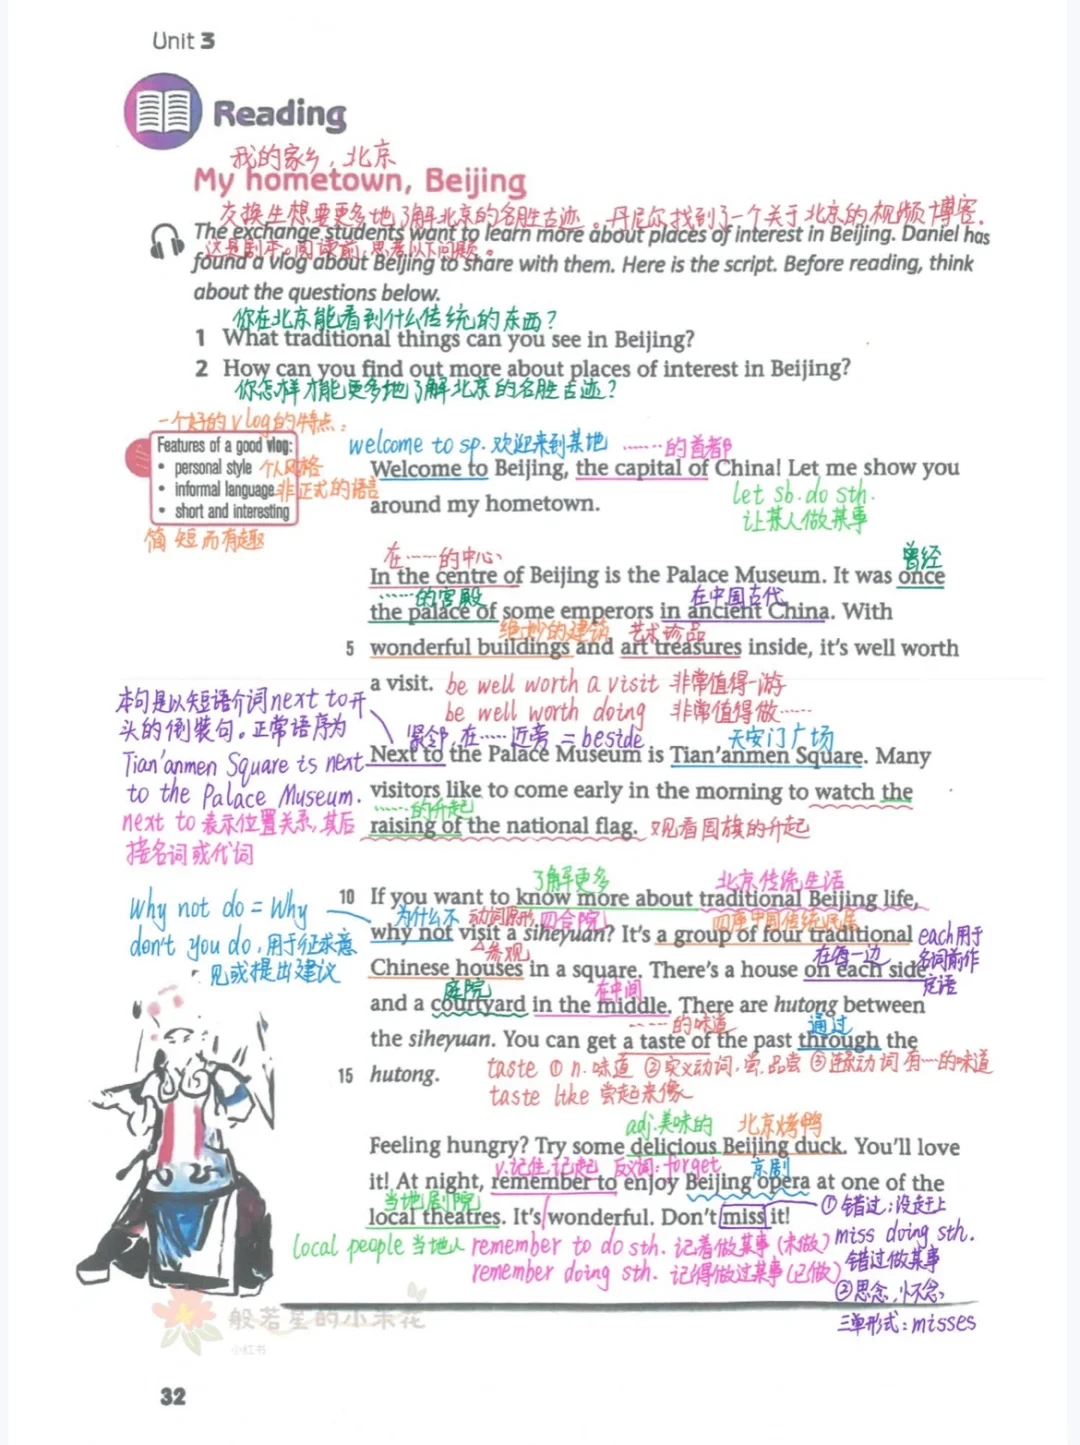 Unit 3
Reading
我的家乡，北京
My hometown, Beijing
交换生想要更多地了解北京的名胜古迹。丹尼尔找到了一个关于北京的视频博客.
The exchange students want to learn more about places of interest in Beijing. Daniel has
这是剧本。阅读前,思考以下问题。
found a vlog about Beijing to share with them. Here is the script. Before reading, think
about the questions below.
你在北京能看到什么传统的东西？
1 What traditional things can you see in Beijing?
2 How can you find out more about places of interest in Beijing?
你怎样才能更多地了解北京的名胜古迹？
一个好的vlog的特点：
Features of a good vlog:
• personal style 个人风格
• informal language 非正式的语言
• short and interesting
简短而有趣
welcome to sp. 欢迎来到某地 ……的首都
Welcome to Beijing, the capital of China! Let me show you
let sb. do sth.
around my hometown.
让某人做某事
在……的中心 曾经
In the centre of Beijing is the Palace Museum. It was once
……的宫殿 在中国古代
the palace of some emperors in ancient China. With
绝妙的建筑 艺术珍品
5 wonderful buildings and art treasures inside, it's well worth
a visit. be well worth a visit 非常值得一游
be well worth doing 非常值得做……
本句是以短语介词next to开
头的倒装句。正常语序为
Tian'anmen Square is next
to the Palace Museum.
next to 表示位置关系,其后
接名词或代词
紧邻,在……近旁 = beside 天安门广场
Next to the Palace Museum is Tian'anmen Square. Many
visitors like to come early in the morning to watch the
……的升起
raising of the national flag. 观看国旗的升起
了解更多 北京传统生活
10 If you want to know more about traditional Beijing life,
Why not do = Why
don't you do,用于征求意
见或提出建议
为什么不 动词原形 四合院 四座中国传统民居
why not visit a siheyuan? It's a group of four traditional
each用于
名词前作
定语
参观 在每一边
Chinese houses in a square. There's a house on each side
庭院 在中间
and a courtyard in the middle. There are hutong between
……的味道 通过
the siheyuan. You can get a taste of the past through the
15 hutong. taste ①n.味道 ②实义动词.尝,品尝 ③连系动词 有…的味道
taste like 尝起来像
adj.美味的 北京烤鸭
Feeling hungry? Try some delicious Beijing duck. You'll love
v.记住,记起 反义词:forget 京剧
it! At night, remember to enjoy Beijing opera at one of the
当地剧院
local theatres. It's wonderful. Don't miss it!
①错过;没赶上
miss doing sth.
错过做某事
②思念,怀念
三单形式:misses
local people 当地人 remember to do sth. 记着做某事(未做)
remember doing sth. 记得做过某事(已做)
般若星的小朵花
小红书
32